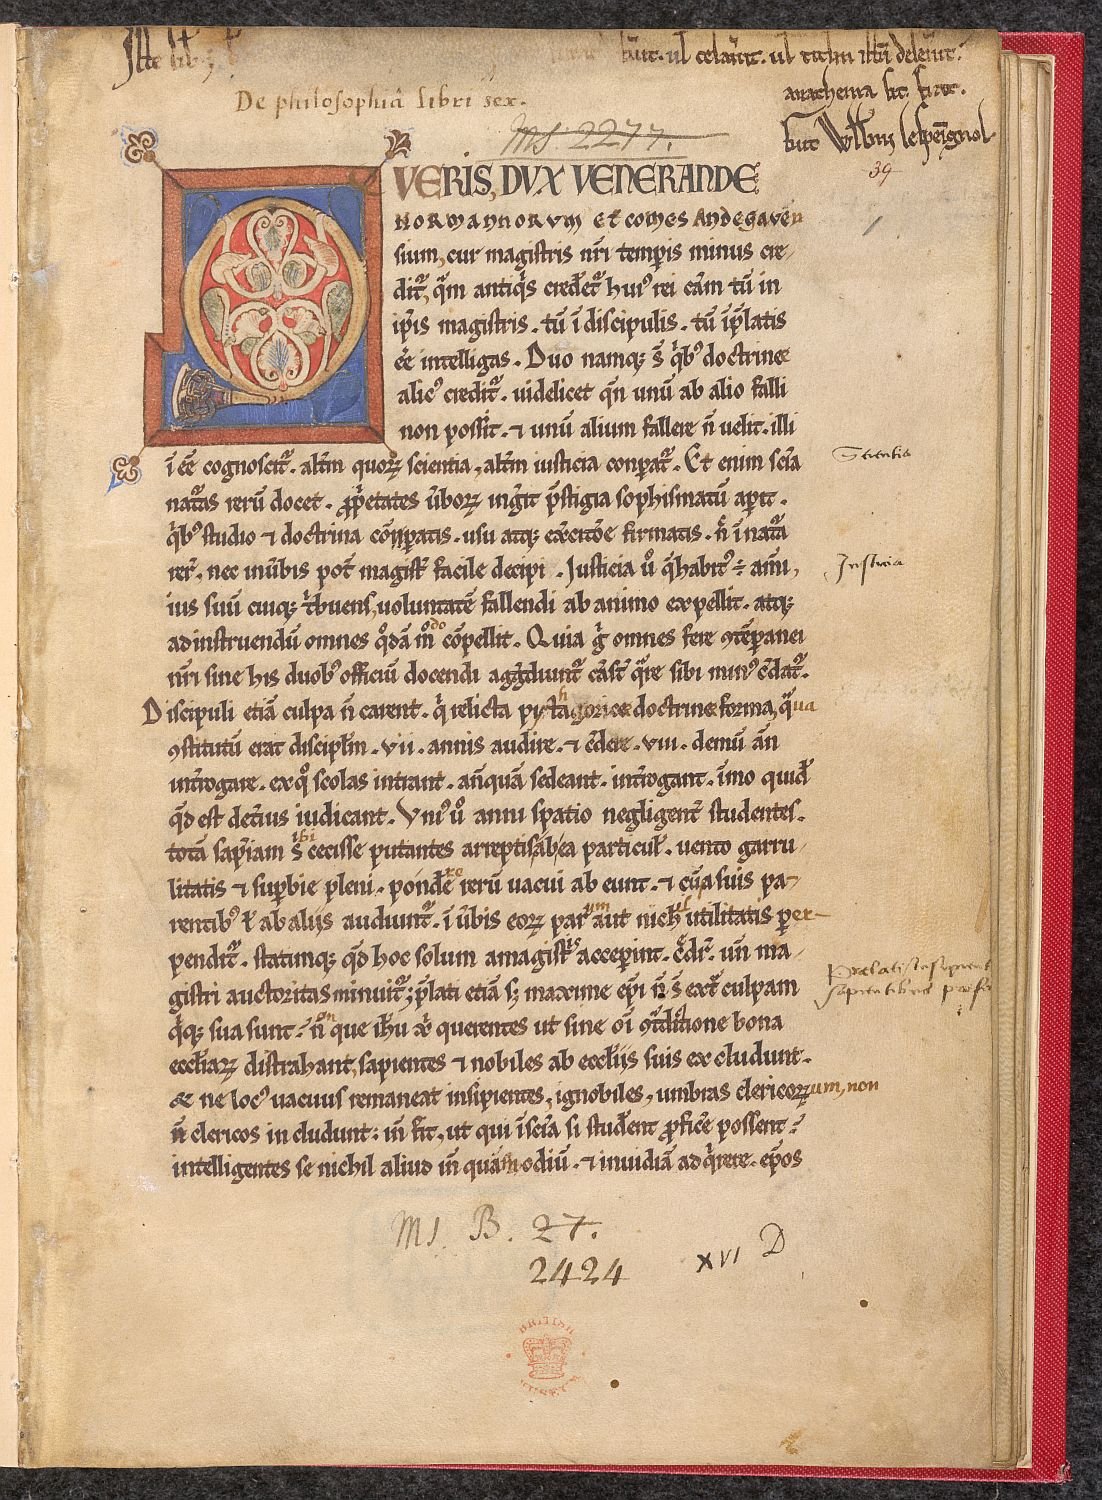 Iste lib
furat' . ul' celauit . ul' titlm istū deleuit .
anathema sit . fiat .
De philosophiâ libri sex.
fuit Willmi lespeignol
MS. 2277.
39
QVERIS, DVX VENERANDE
NORMANNORVM Et COMES ANDEGAVEN
sium, cur magistris nr̄i temp̄is minus cre
ditr̄, q̄m antiqis credet̄ hui' rei cām tū in
ip̄is magistris . tū ī discipulis . tū ī p̄latis
ēē intelligas . Duo namq; s̄ q̄b' doctrinæ
alic' credit̄ . uidelicet q̄n unū ab alio falli
non possit . ⁊ unū alium fallere n̄ uelit . illi
ī ēē cognoscit̄ . alt̄m quoꝝ scientia, alt̄m iusticia conparat̄ . Et enim sci'a
Scientia
nat'as rerū docet . ꝓp'etates ūboꝝ ing'it p̄stigia sophismatū ap'it .
q̄b' studio ⁊ doctrina cōparatis . usu atq; ex'citiōe firmatis . n̄ ī nat'a
rer̄ . nec in ūbis pot̄ magist̄ facile decipi . Justicia ů q̄ habit' ÷ animi,
Justicia
ius suū cuiq; t'buens, uoluntatē fallendi ab animo expellit . atq;
ad instruendū omnes q°dā m°do cōpellit . Quia g̊ omnes fere ꝯtēporanei
nr̄i sine his duob' officiū docendi aggrediunt̄ cā st̄ q̄re sibi min' c̄dat̄ .
Discipuli etiā culpa n̄ carent . q̄ relicta pythagoricæ doctrinæ forma, qua
ꝯstitutū erat discip̄lm . vii . annis audire . ⁊ c̄dere . viii . demū ān
int'rogare . ex q° scolas intrant . anq̄uā sedeant . int'rogant . īmo quid̄
q̄d est det'ius iudicant . Vni' ů anni spatio negligent̄ studentes .
totā sap'iam sibi cecisse putantes arreptis ab ea particul' . uento garru
litatis ⁊ sup̄bie pleni . pondere rerū uacui abeunt . ⁊ cū a suis pa
rentib' ł ab alijs audiunt̄ . ī ūbis eoꝝ parum aut nichil utilitatis per
pendit̄ . statimq; q̄d hoc solum a magistris acceperint . c̄dit̄ . un̄ ma
gistri auctoritas minuit̄; p̄lati etiā s; maxime ep̄i n̄ s̄ ext̄ culpam
q̄q; sua sunt ? non que ih̄u x̄p̄i querentes ut sine oī ꝯt̄dictione bona
eccl'iaꝝ distrahant, sapientes ⁊ nobiles ab eccl'ijs suis excludunt .
& ne loc' uacuus remaneat insipientes, ignobiles, umbras clericoꝝum, non
n̄ clericos includunt : in̄ fit, ut qui ī sci'a si studerent ꝓficere possent ?
intelligentes se nichil aliud in̄ quam odiū . ⁊ inuidiā adq̄rere . ep̄os
MS. B. 27.
2424
XVI D